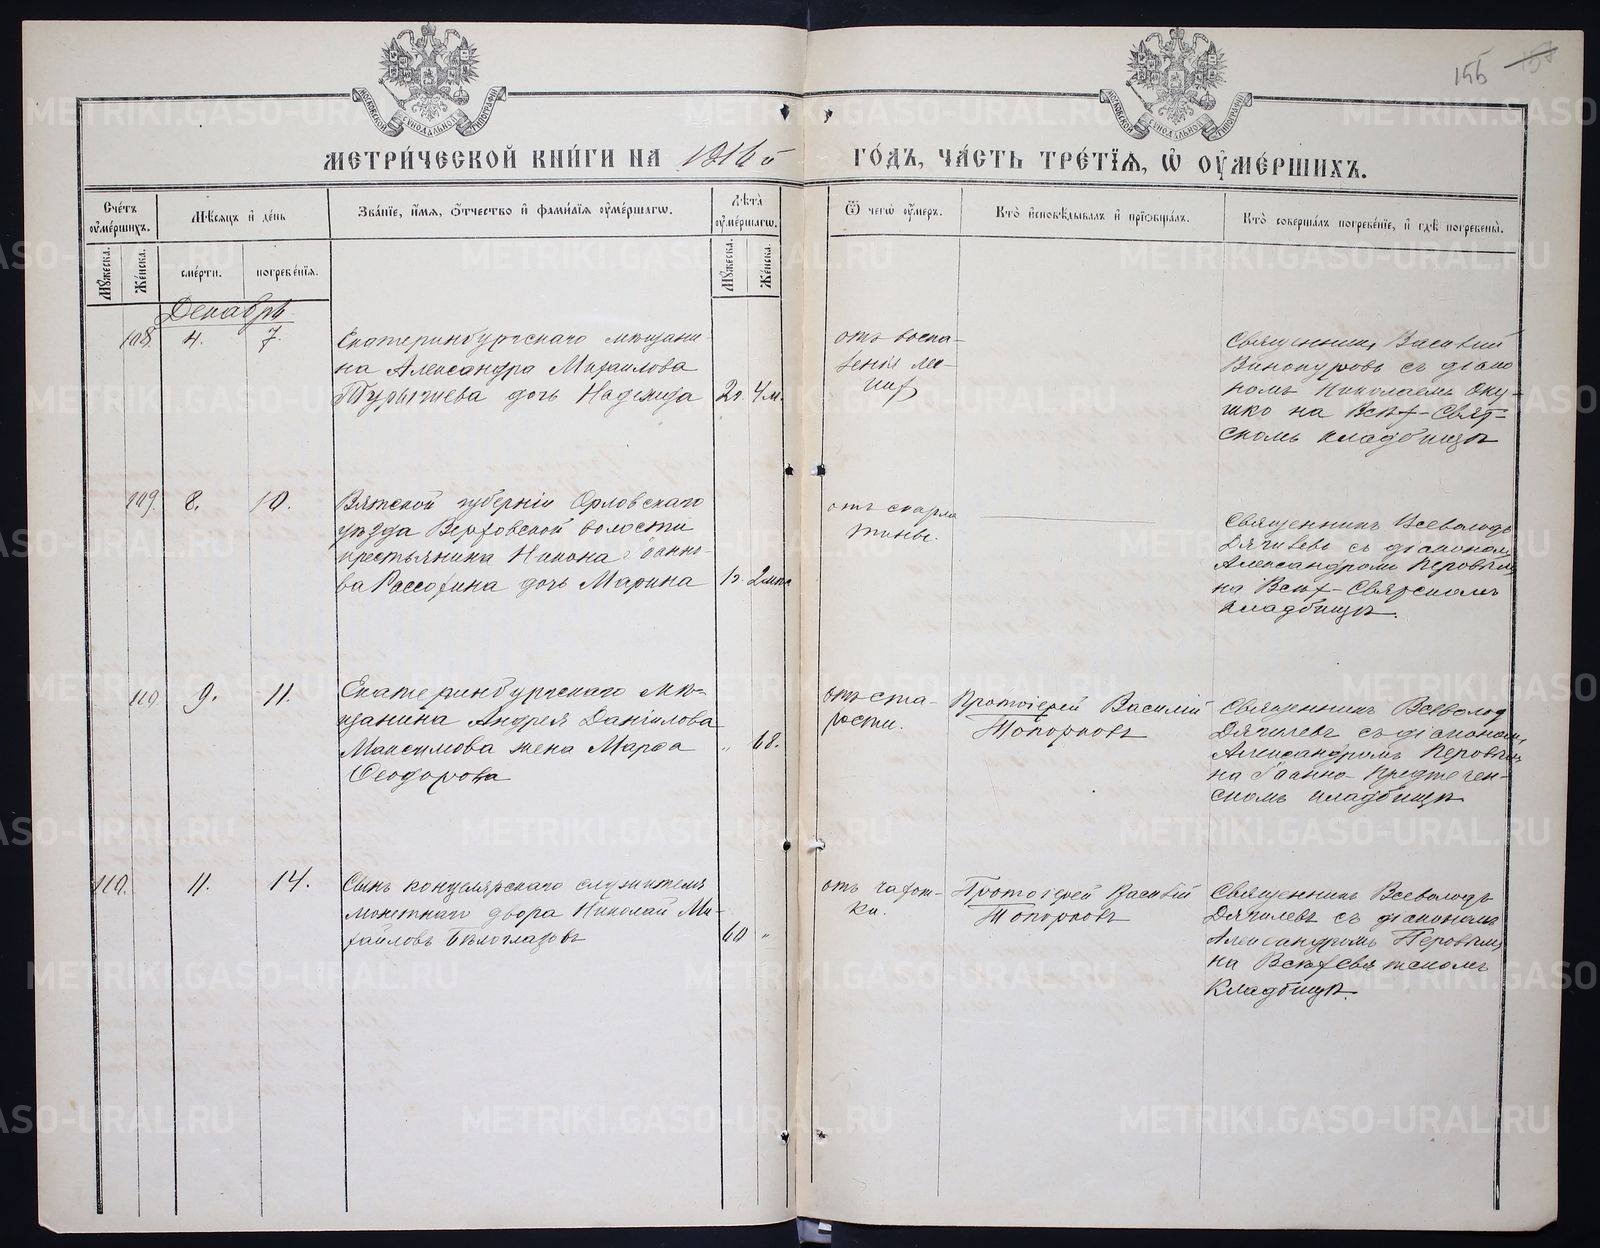 155
МЕТРИ́ЧЕСКОЙ КНИ́ГИ НА 1916й ГО́ДЪ, ЧА́СТЬ ТРЕ́ТІѦ, Ѡ҆ ОУ҆МЕ́РШИХЪ.
Сче́тъ оу҆ме́ршихъ.
Мѣ́сяцъ и҆ де́нь
Зва́нїе, и҆́мя, ѻ҆́тчество и҆ фами́лїя оу҆ме́ршагѡ.
Лѣ́та оу҆ме́ршагѡ.
Ѿ чегѡ̀ оу҆́меръ.
Кто̀ и҆сповѣ́дывалъ и҆ прїѡбща́лъ.
Кто̀ соверша́лъ погребе́нїе, и҆ гдѣ̀ погребены̀.
Мꙋ́жеска.
Же́нска.
сме́рти.
погребе́нїя.
Мꙋ́жеска.
Же́нска.
Декабрь
108. 4. 7.
Екатеринбургскаго мѣщани-
на Александра Михаилова
дочь Надежда 2г. 4м.
отъ воспа-
ленія лег-
кихъ
Священникъ Василій
Винокуровъ съ діако
номъ Николаемъ Оку-
шко на Всѣх-Свят-
скомъ кладбищѣ
109. 8. 10.
Вятской губерніи Орловскаго
уѣзда Верховской волости
крестьянина Никона Іоанно-
ва Рассохина дочь Марина 1г. 2мца
отъ скарла
тины.
Священникъ Всеволодъ
Дягилевъ съ діакономъ
Александромъ Перовымъ
на Всѣх-Святскомъ
кладбищѣ.
110 9. 11.
Екатеринбургскаго мѣ-
щанина Андрея Даніилова
Максимова жена Марѳа „ 68.
Ѳеодорова
отъ ста-
рости.
Протоіерей Василій
Топорковъ
Священникъ Всеволод
Дягилевъ съ діакономъ
Александромъ Перовымъ
на Іоанно-Предтечен-
скомъ кладбищѣ
110. 11. 14.
Сынъ канцелярскаго служителя
монетнаго двора Николай Ми-
хайловъ Бѣлоглазовъ 60 „
отъ чахот-
ки.
Протоіерей Василій
Топорковъ
Священникъ Всеволодъ
Дягилевъ съ діакономъ
Александромъ Перовымъ
на Всѣхсвятскомъ
Кладбищѣ.
METRIKI.GASO-URAL.RU